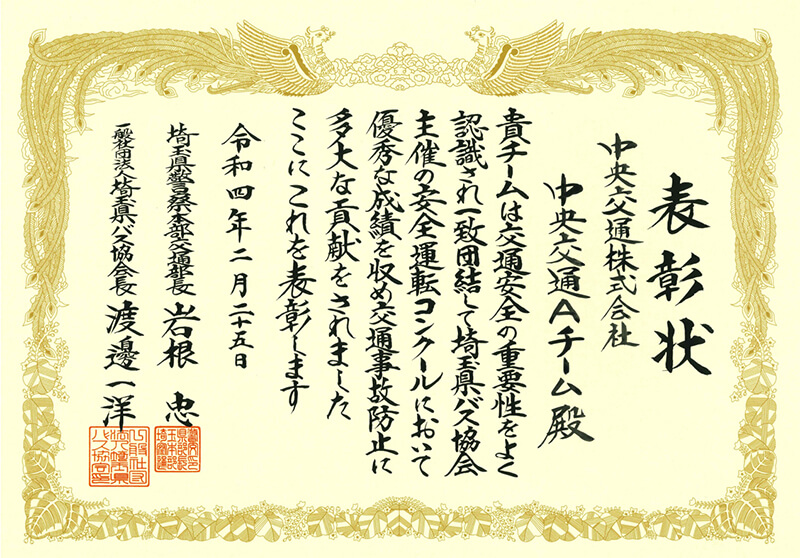 表彰状
中央交通株式会社
中央交通Aチーム殿
貴チームは交通安全の重要性をよく
認識され一致団結して埼玉県バス協会
主催の安全運転コンクールにおいて
優秀な成績を収め交通事故防止に
多大な貢献をされました
ここにこれを表彰します
令和四年二月二十五日
埼玉県警察本部交通部長 岩根 忠
一般社団法人埼玉県バス協会長 渡邊一洋